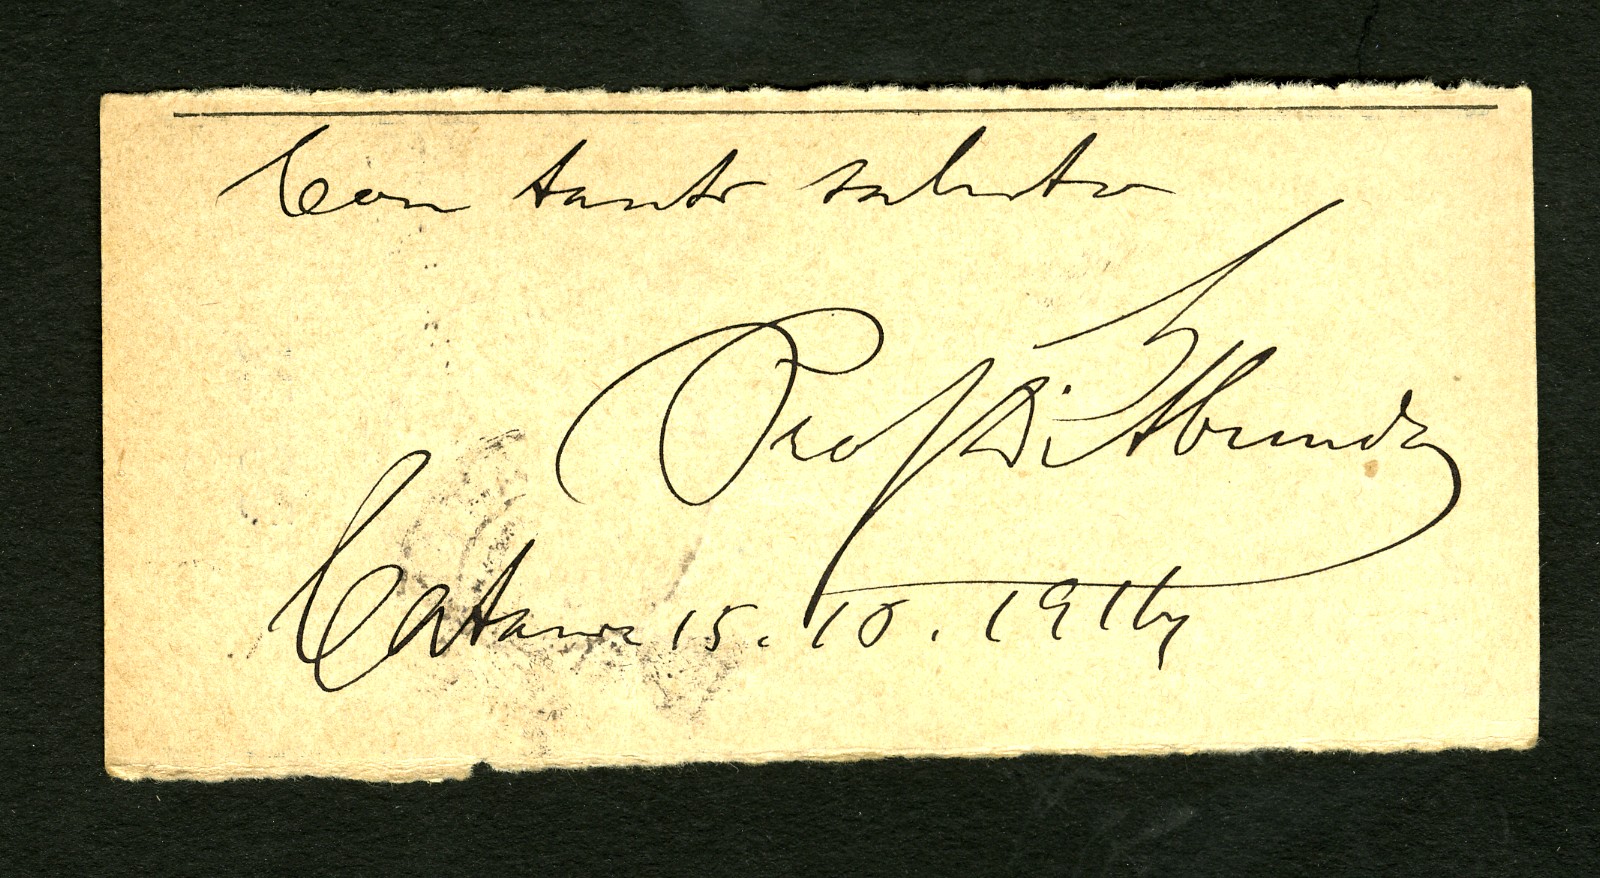 Con tanti saluti
Prof. D'Abundo
Catania 15. 10. 1914